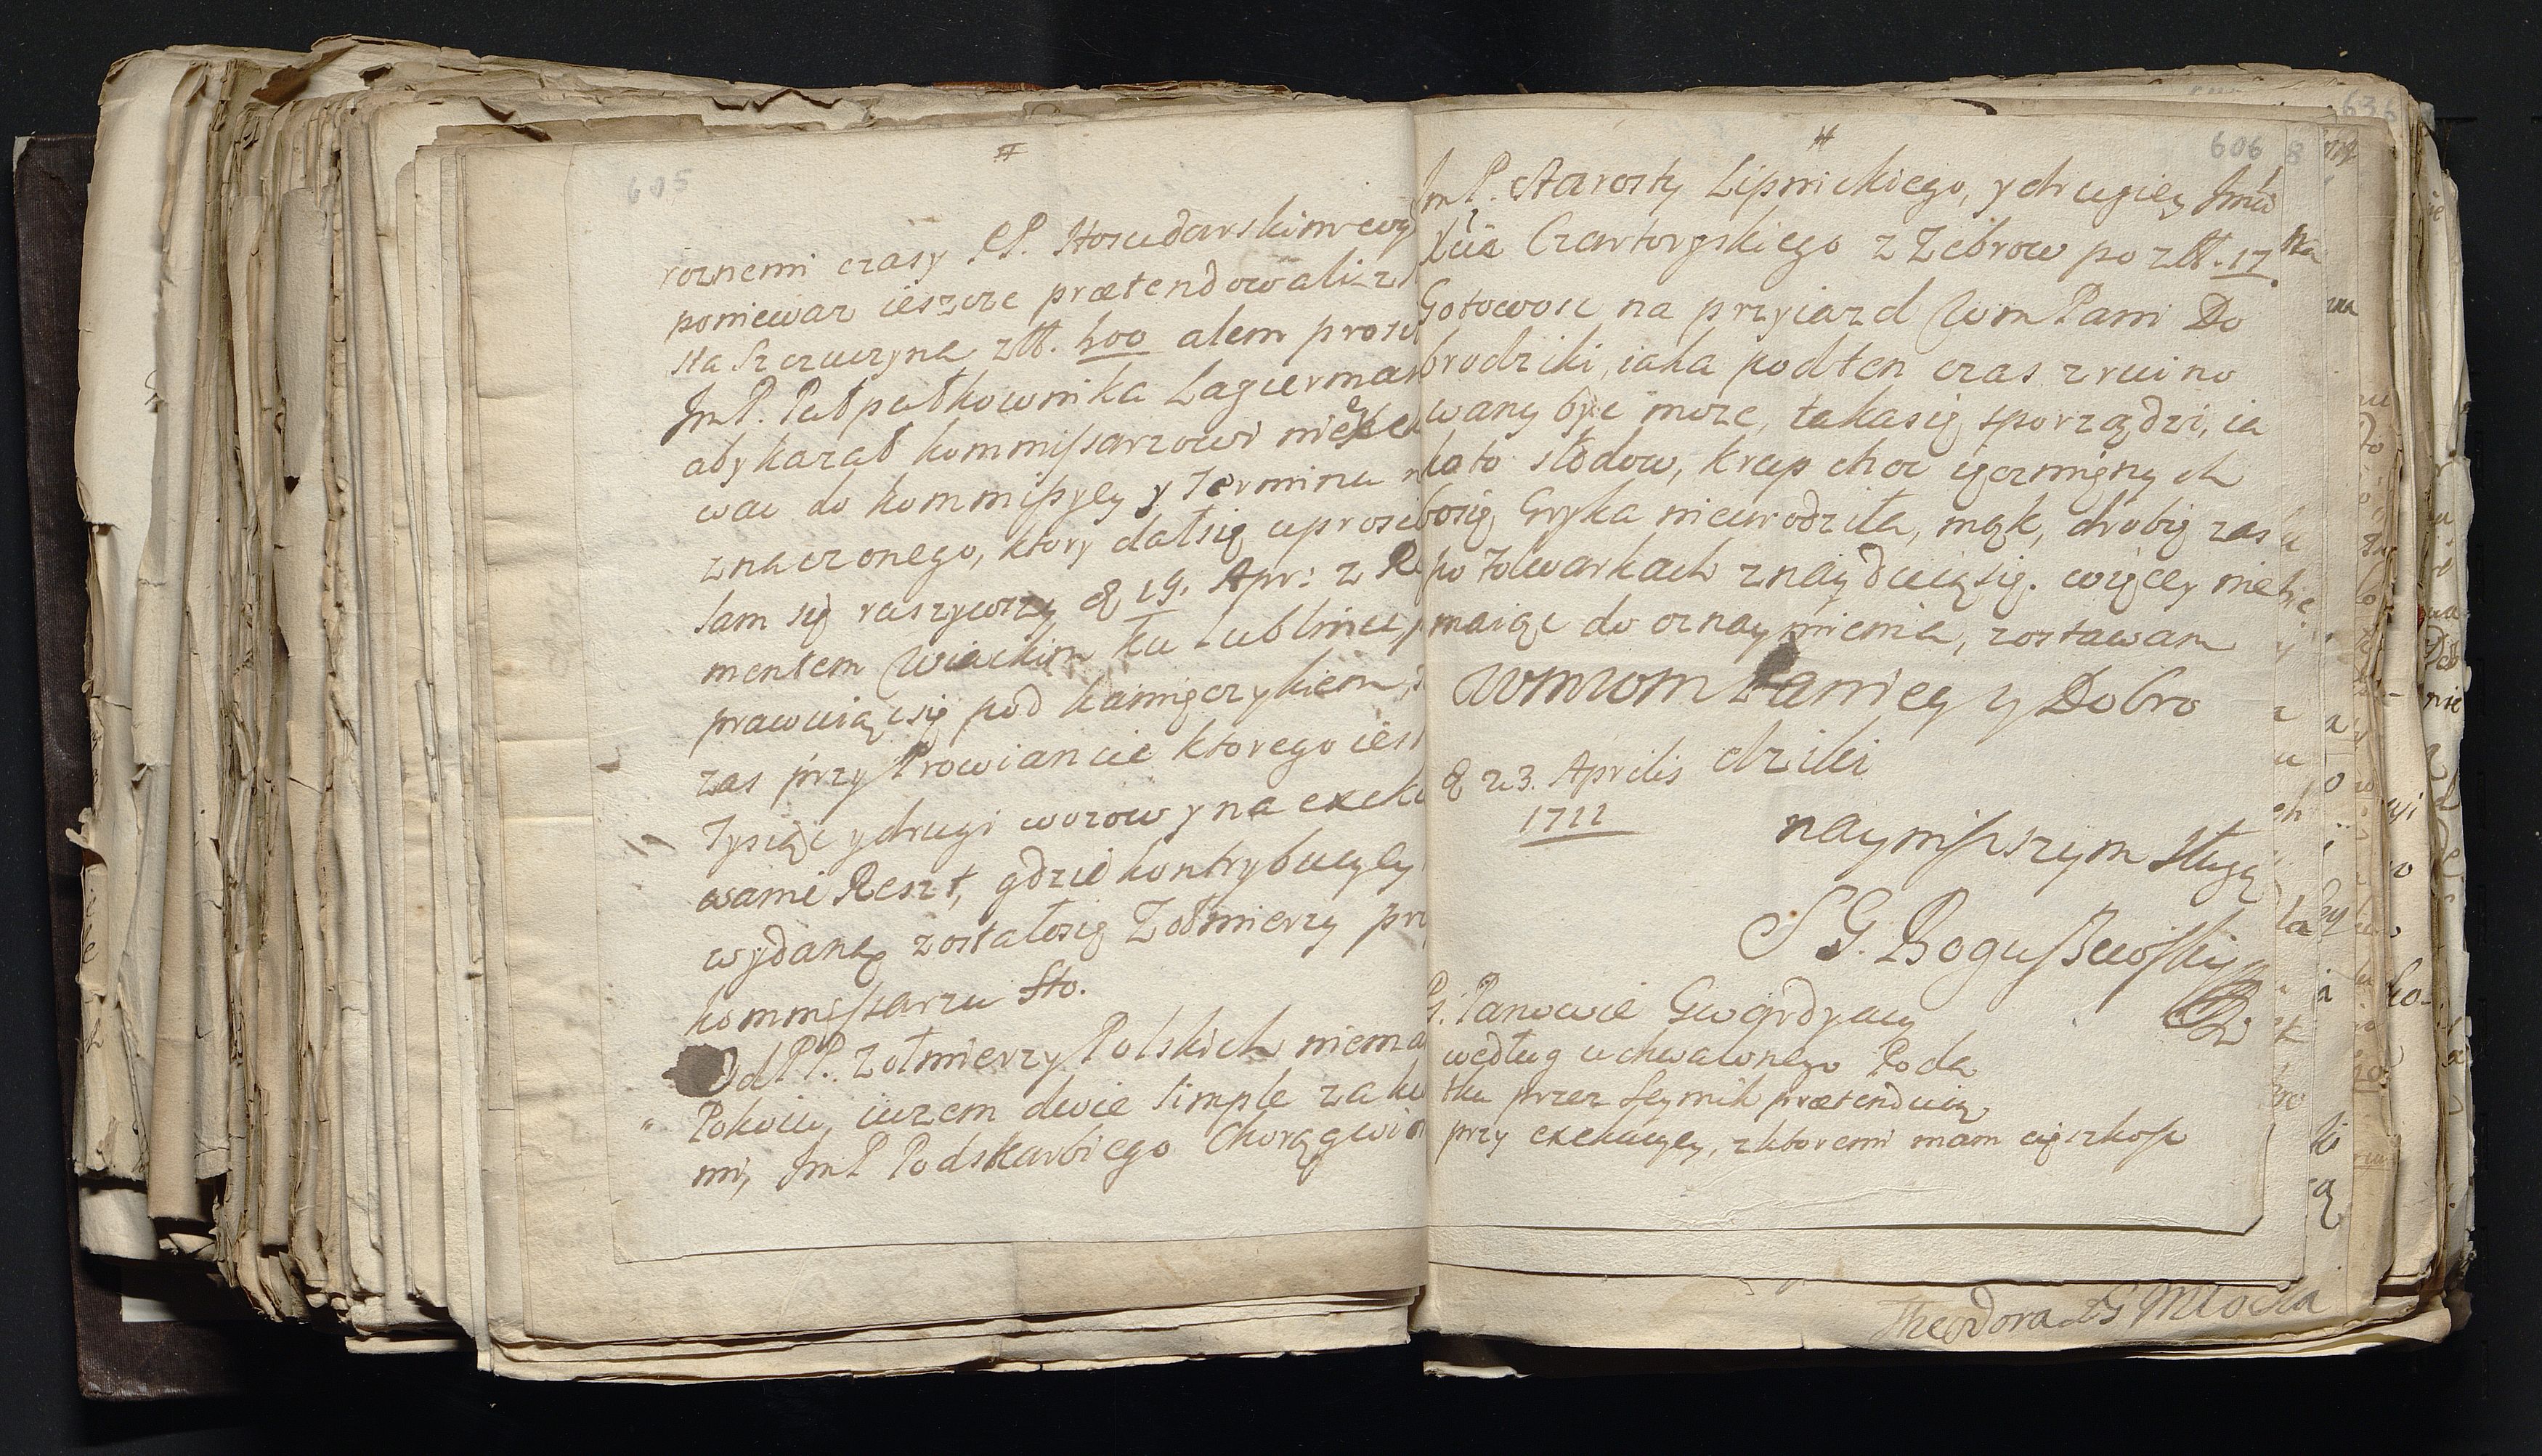 605
roznemi czasy PP. Hosudarskim wy
poniewaz ieszcze prætendowali z
sta Szczuczyna złł. 400 alem prosił
JmP. Pułpułkownika Lagierma
aby kazał kommissarzowi nie
wac do kommissyey y Terminu n
znaczonego, ktory dałsię uprosic
sam się ruszywszy d 19. Apr: z Re
mentem Wiackim ku Lublinu
prawuiącsię pod kamięczykiem,
zas przy Prowiancie ktorego iest
Tysiąc y drugi wozow y na exeku
wanie Reszt, gdzie kontrybucyey
wydaney zostałosię Zołnierzy prz
kommissarzu Sto.
Od PP. Zołnierzy Polskich niema
Pokoiu, iuzem dwie simple za
mi, JmP Podskarbiego Chorągwi
606
JmP. Starosty Lipnickiego, y drugiey Jmci
Xcia Czartoryskiego z Zebrow po złł. 17
Gotowosc na przyiazd Wm Pani Do
brodziki, iaka podten czas zruino
wany byc moze, takasię sporządzi, ia
kato słodow, krup choc ięczmięnych
bosię Gryka nieurodziła, mąk, drobię zas
po Folwarkach znaydzieięsię. więcey nie
maiąc do oznaymienia, zostawam
Wmwm Paniey y Dobro
dziki
d 23. Aprilis
1712
naymższym sługą
S G. Bogussewsky
PS. Panowie Gwardyacy
według uchwalonego Poda
tku przez Seymik prætenduią
przy exekucyey, z ktoremi mam cięszkosc
636
Theodora Młocka